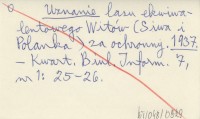 Uznanie lasu ekwiwa-
lentowego Witów (Siwa i
Polanka) za ochronny. 1937.
– Kwart. Biul. Inform. 7,
nr 1: 25-26.